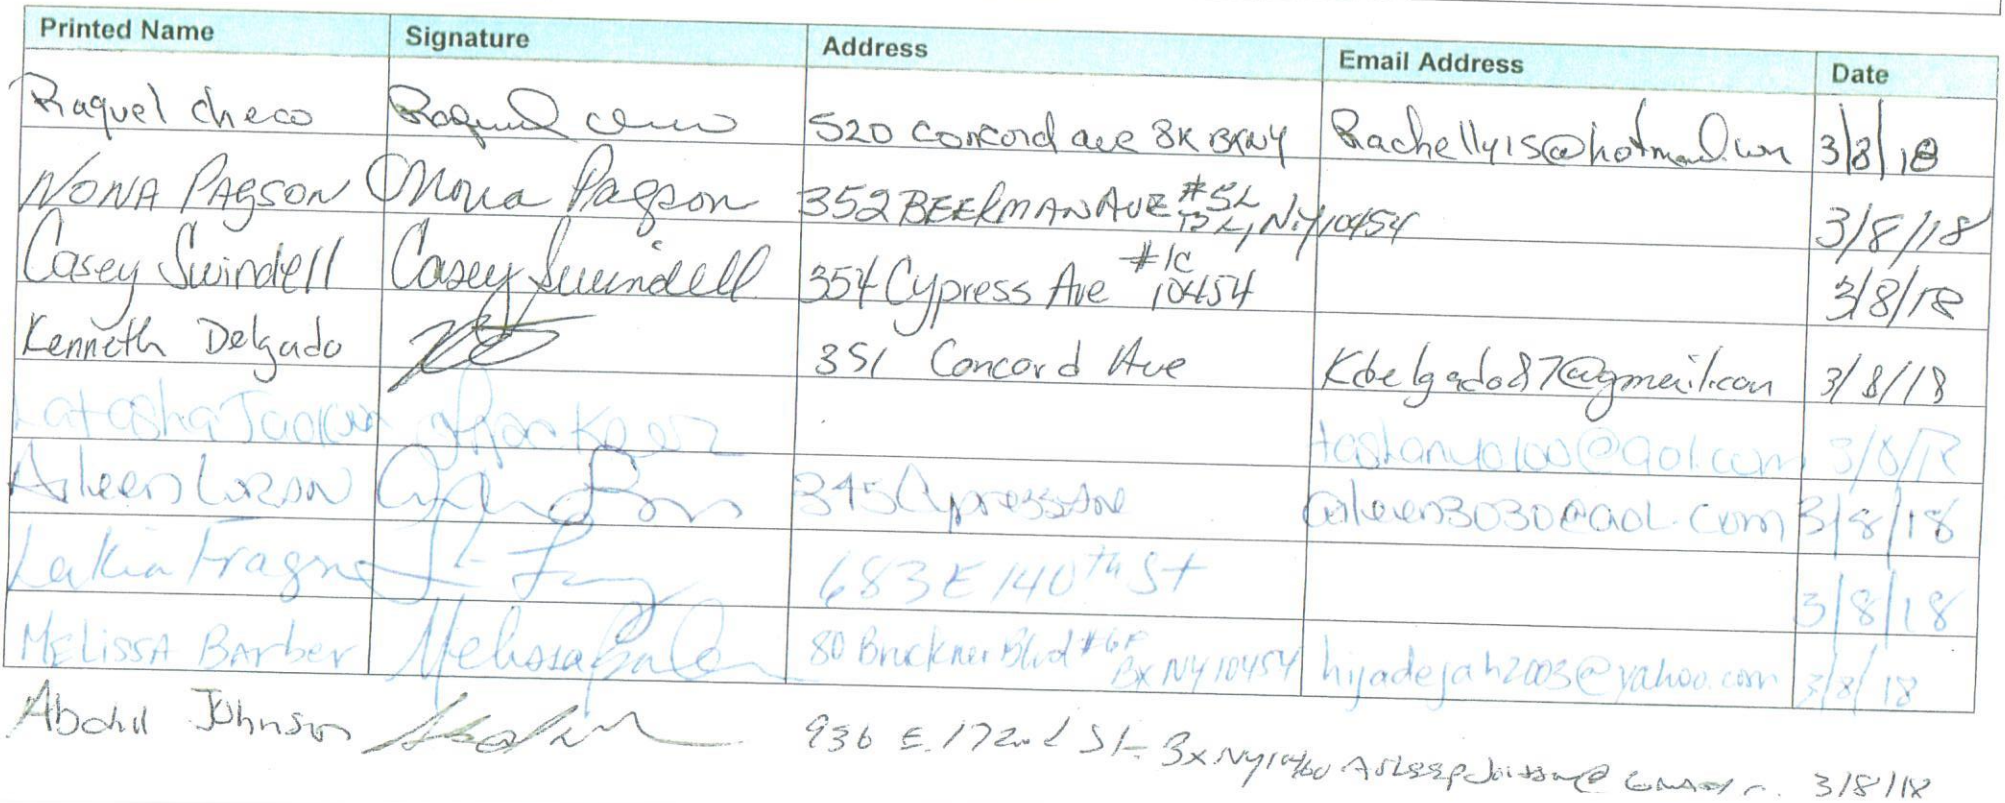 Printed Name Signature Address Email Address Date
Raquel Checo Raquel Checo 520 Concord ave 8K BX NY 3/8/18
NONA PAGSON Nona Pagson 352 BEEKMAN AVE #5L NY 10454 3/8/18
Casey Swindell Casey Swindell 354 Cypress Ave #1C 10454 3/8/18
Kenneth Delgado 351 Concord Ave 3/8/18
Latasha 3/8/18
Aileen 345 Cypress Ave aileen3030@aol.com 3/8/18
Lakia 683 E 140th St 3/8/18
MELISSA BARber Melissa 80 Bruckner Blvd #6F Bx NY 10454 hijadejah2003@yahoo.com 3/8/18
Johnson 936 E. 172nd St. Bx NY 10460 3/8/18